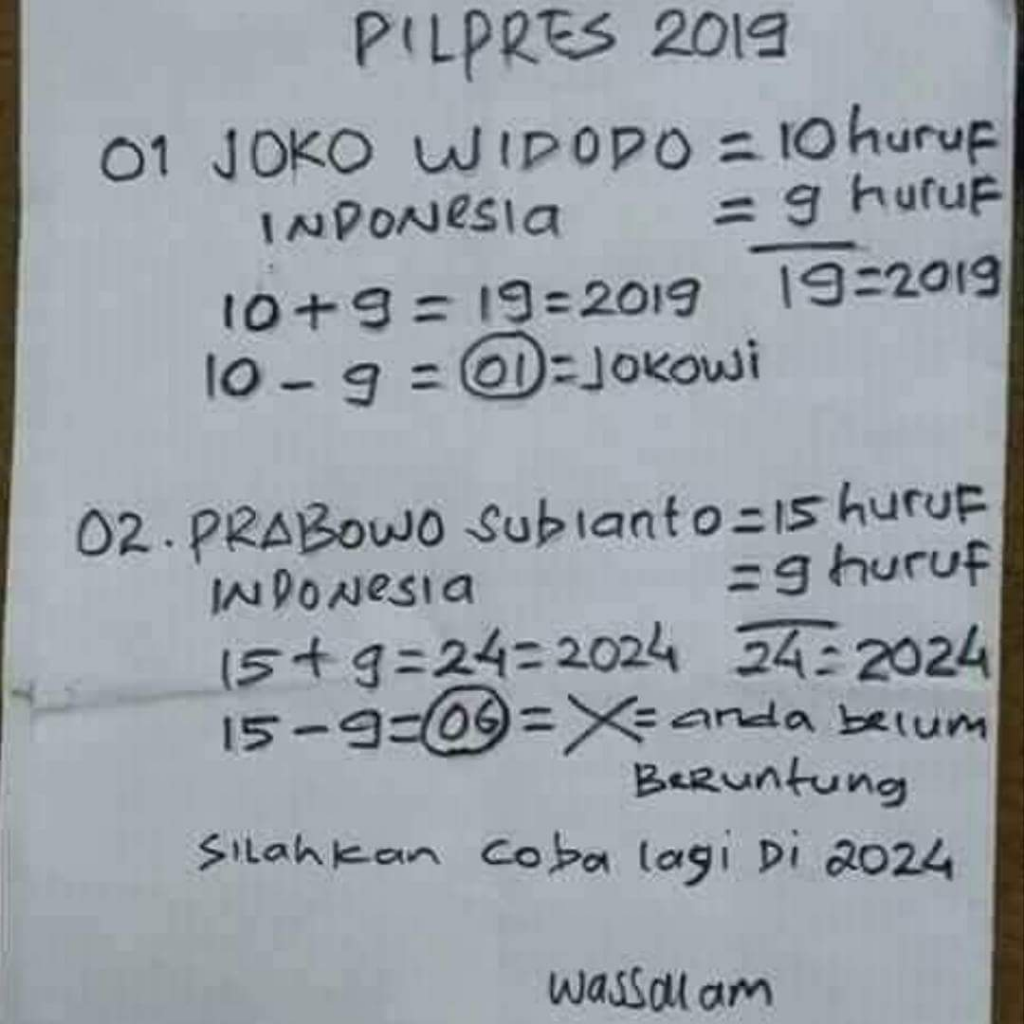 PILPRES 2019
01 JOKO WIDODO = 10 huruf
INDONesia = 9 huruf
10 + 9 = 19 = 2019 19 = 2019
10 - 9 = 01 = Jokowi
02. PRABOWO Subianto = 15 huruf
INDONesia = 9 huruf
15 + 9 = 24 = 2024 24 = 2024
15 - 9 = 06 = X = anda belum
Beruntung
Silahkan coba lagi Di 2024
Wassalam